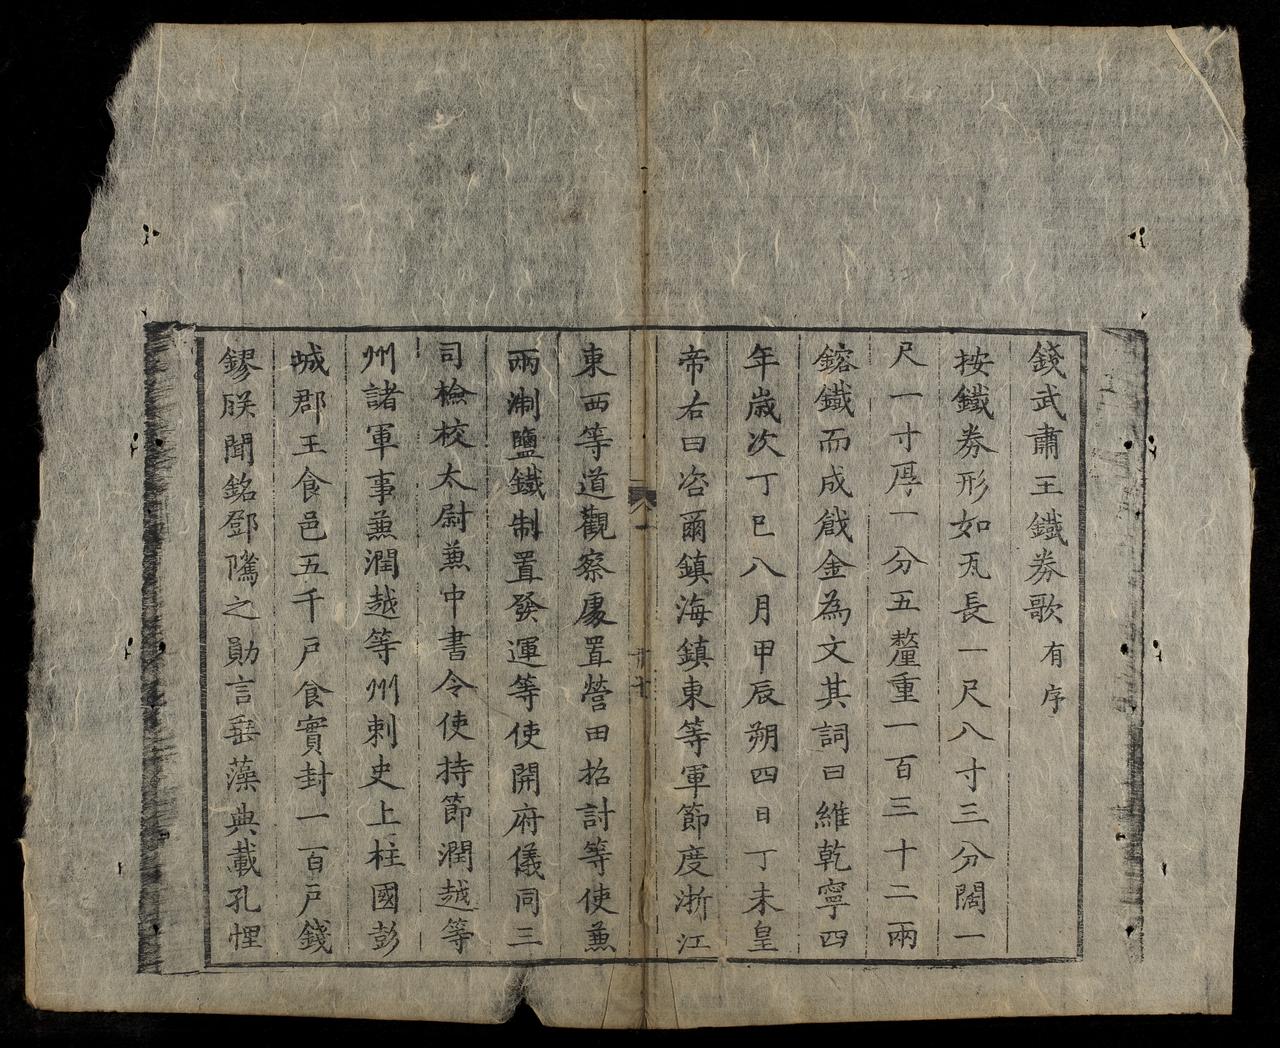 錢武肅王鐵券歌 有序
按鐵券形如瓦長一尺八寸三分闊一
尺一寸厚一分五釐重一百三十二兩
鎔鐵而成戧金為文其詞曰維乾寧四
年歲次丁巳八月甲辰朔四日丁未皇
帝右曰咨爾鎮海鎮東等軍節度浙江
東西等道觀察處置營田招討等使兼
兩淛鹽鐵制置發運等使開府儀同三
司檢校太尉兼中書令使持節潤越等
州諸軍事兼潤越等州刺史上柱國彭
城郡王食邑五千戶食實封一百戶錢
鏐朕聞銘鄧騭之勛言垂藻典載孔悝